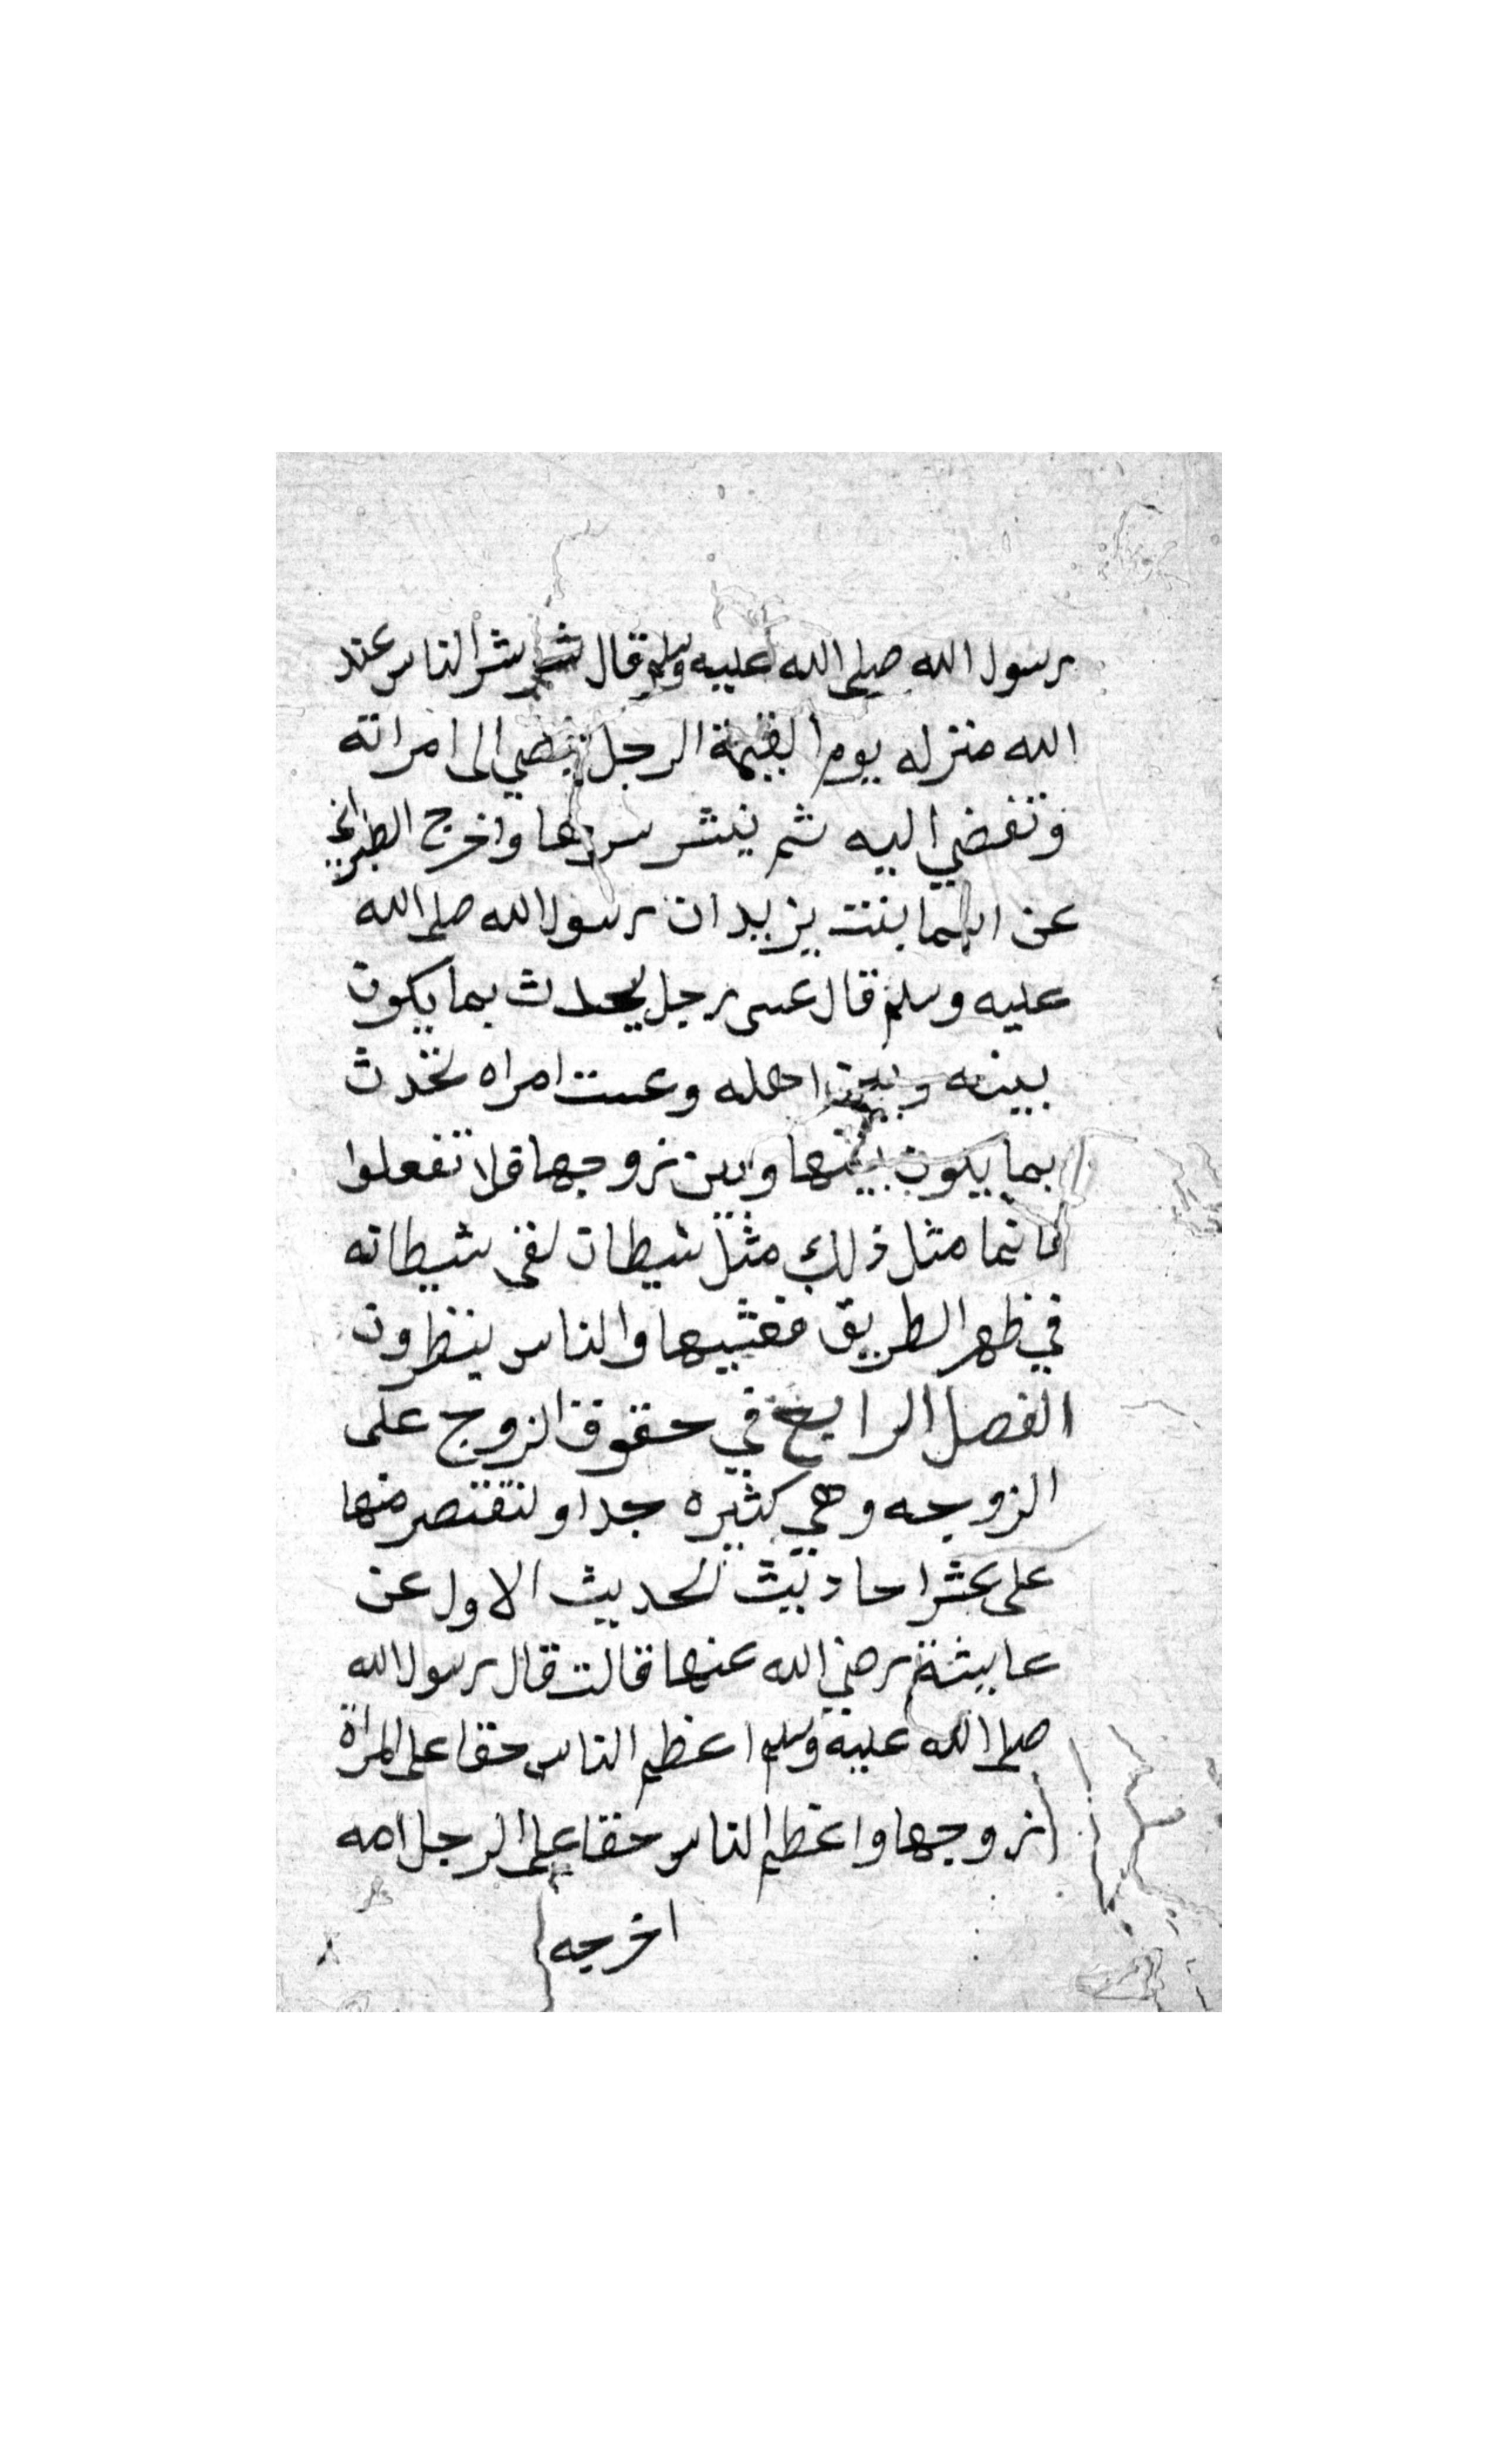 رسول الله صلى الله عليه وسلم قال شر الناس عند
الله منزله يوم القيمة الرجل يفضي الى امراته
وتفضي اليه ثم ينشر سرها واخرج الطبراني
عن اسما بنت يزيد ان رسول الله صلى الله
عليه وسلم قال عسى رجل يحدث بما يكون
بينه وبين اهله وعست امراه تحدث
بما يكون بينها وبين زوجها فلا تفعلوا
فانما مثل ذلك مثل شيطان لقى شيطانه
في ظهر الطريق فغشيها والناس ينظرون
الفصل الرابع في حقوق الزوج على
الزوجه وهي كثيره جدا ولنقتصر منها
على عشر احاديث الحديث الاول عن
عايشة رضي الله عنها قالت قال رسول الله
صلى الله عليه وسلم اعظم الناس حقا على المراة
زوجها واعظم الناس حقا على الرجل امه
اخرجه